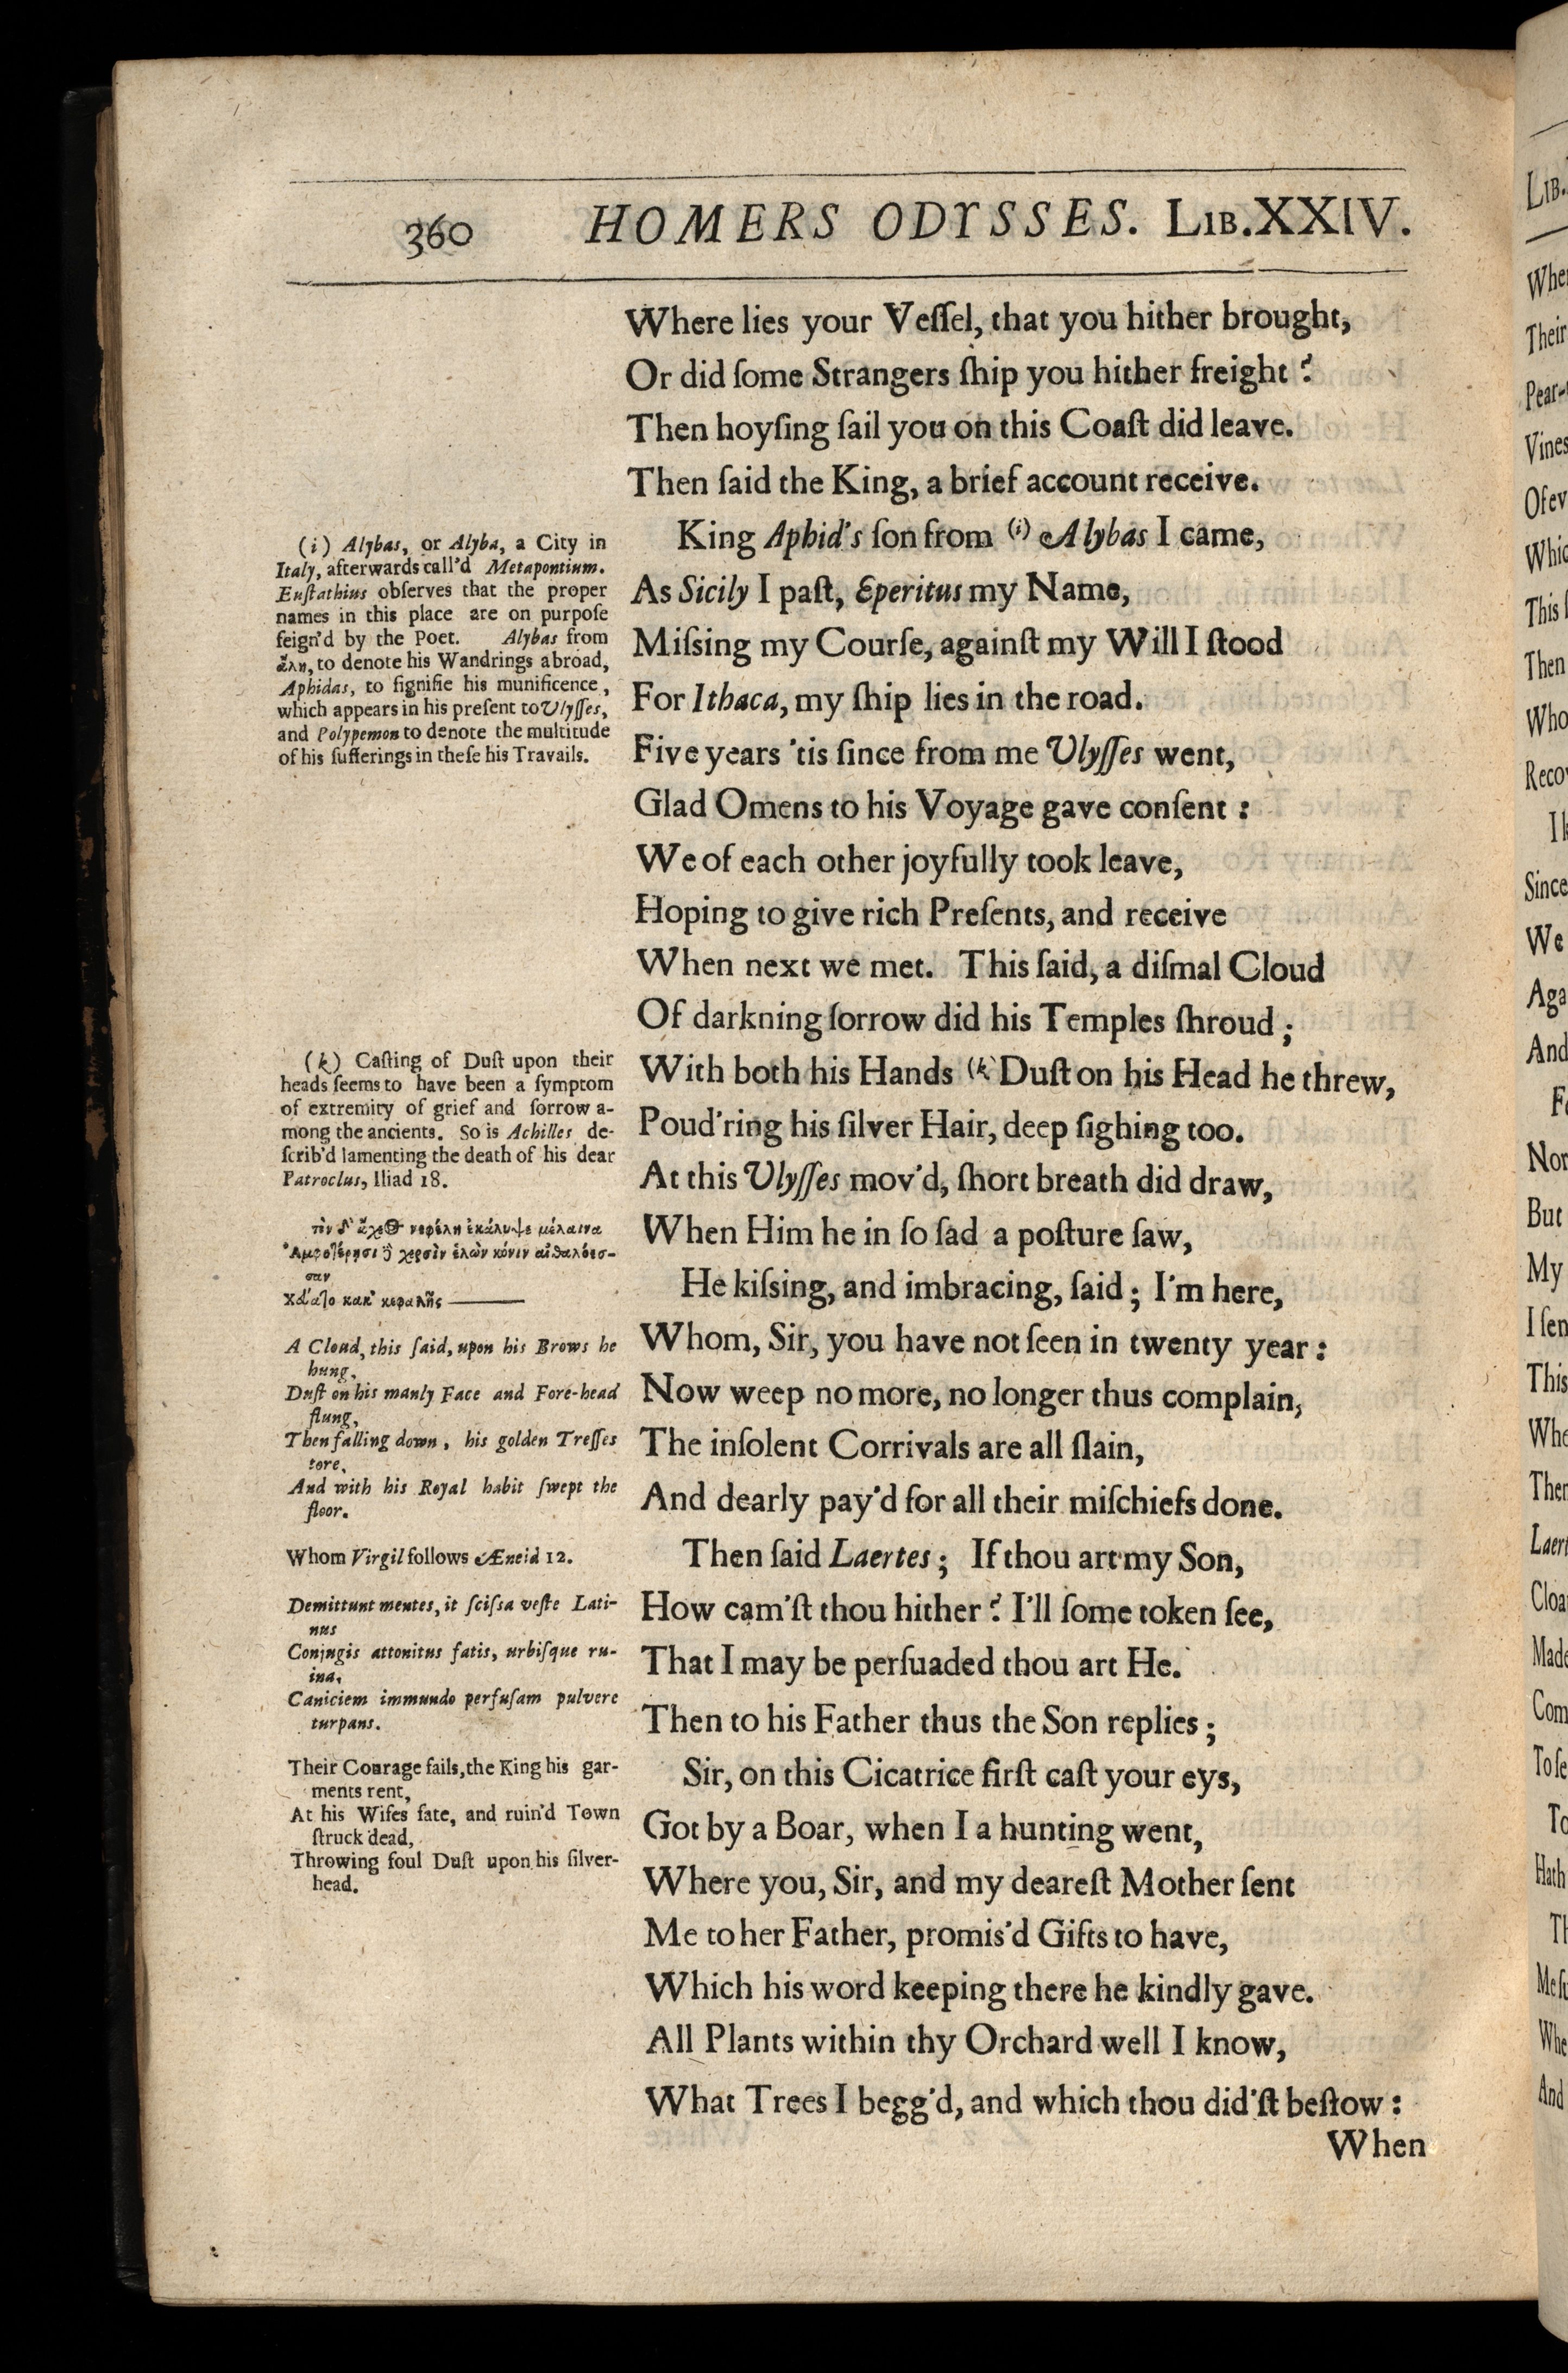 360 HOMERS ODYSSES. LIB.XXIV.
Where lies your Veſſel, that you hither brought,
Or did ſome Strangers ſhip you hither freight?
Then hoyſing ſail you on this Coaſt did leave.
Then ſaid the King, a brief account receive.
King Aphid's ſon from (i) Alybas I came,
As Sicily I paſt, Eperitus my Name,
Miſsing my Courſe, againſt my Will I ſtood
For Ithaca, my ſhip lies in the road.
Five years 'tis ſince from me Ulyſſes went,
Glad Omens to his Voyage gave conſent:
We of each other joyfully took leave,
Hoping to give rich Preſents, and receive
When next we met. This ſaid, a diſmal Cloud
Of darkning ſorrow did his Temples ſhroud;
With both his Hands (k) Duſt on his Head he threw,
Poud'ring his ſilver Hair, deep ſighing too.
At this Ulyſſes mov'd, ſhort breath did draw,
When Him he in ſo ſad a poſture ſaw,
He kiſsing, and imbracing, ſaid; I'm here,
Whom, Sir, you have not ſeen in twenty year:
Now weep no more, no longer thus complain,
The inſolent Corrivals are all ſlain,
And dearly pay'd for all their miſchiefs done.
Then ſaid Laertes; If thou art my Son,
How cam'ſt thou hither? I'll ſome token ſee,
That I may be perſuaded thou art He.
Then to his Father thus the Son replies;
Sir, on this Cicatrice firſt caſt your eys,
Got by a Boar, when I a hunting went,
Where you, Sir, and my deareſt Mother ſent
Me to her Father, promis'd Gifts to have,
Which his word keeping there he kindly gave.
All Plants within thy Orchard well I know,
What Trees I begg'd, and which thou did'ſt beſtow:
When
(i) Alybas, or Alyba, a City in
Italy, afterwards call'd Metapontium.
Euſtathius obſerves that the proper
names in this place are on purpoſe
feign'd by the Poet. Alybas from
ἄλη, to denote his Wandrings abroad,
Aphidas, to ſignifie his munificence,
which appears in his preſent to Ulyſſes,
and Polypemon to denote the multitude
of his ſufferings in theſe his Travails.
(k) Caſting of Duſt upon their
heads ſeems to have been a ſymptom
of extremity of grief and ſorrow a-
mong the ancients. So is Achilles de-
ſcrib'd lamenting the death of his dear
Patroclus, Iliad 18.
τὸν δ' ἄχος νεφέλη ἐκάλυψε μέλαινα
Ἀμφοτέρησι ἢ χερσὶν ἑλὼν κόνιν αἰθαλόεσ-
σαν
Χεύατο κακ' κεφαλῆς ———
A Cloud, this ſaid, upon his Brows he
hung,
Duſt on his manly Face and Fore-head
flung,
Then falling down, his golden Treſſes
tore,
And with his Royal habit ſwept the
floor.
Whom Virgil follows Æneid 12.
Demittunt mentes, it ſciſsa veſte Lati-
nus
Conjugis attonitus fatis, urbiſque ru-
ina,
Caniciem immundo perfuſam pulvere
turpans.
Their Courage fails, the King his gar-
ments rent,
At his Wifes fate, and ruin'd Town
ſtruck dead,
Throwing foul Duſt upon his ſilver-
head.